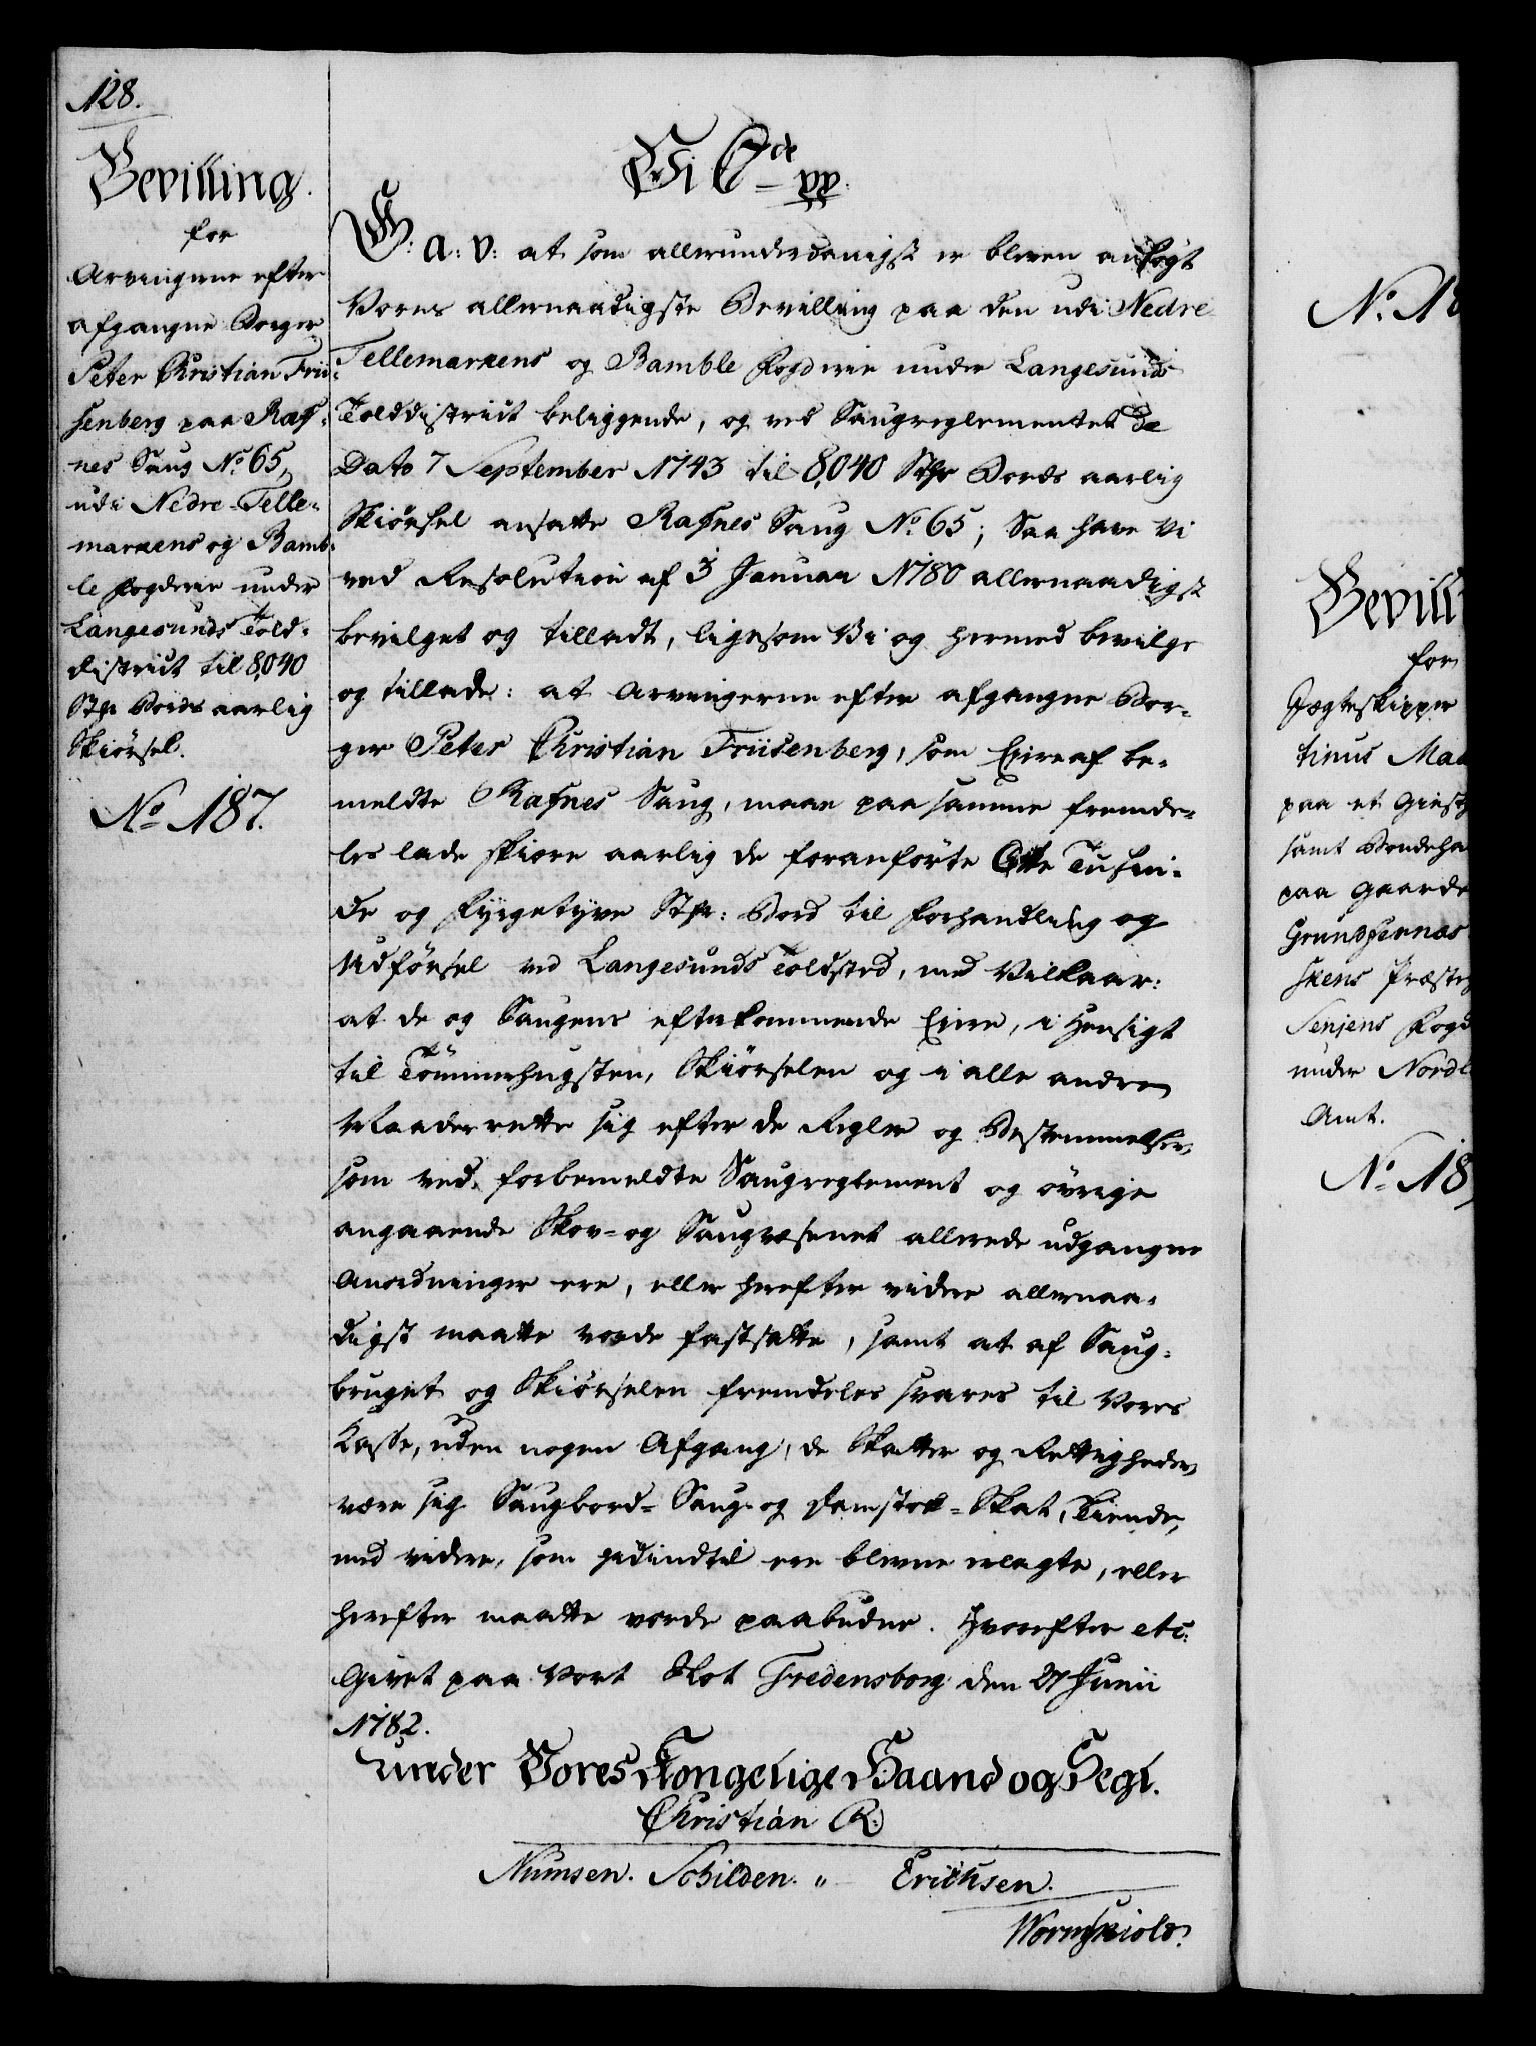 128.
Bevilling.
for
Arvingerne efter
afgangne Borger
Peter Christian Frii-
senberg paa Raf-
nes Saug No. 65,
udi Nedre-Telle-
markens og Bamb-
le Fogderie under
Langesunds Told-
district til 8,040
Stkr. Bords aarlig
Skiørsel.
No. 187.
Vi C 7de pp.
G: A: V: at som allerunderdanigst er bleven ansøgt
Vores allernaadigste Bevilling paa den udi Nedre
Tellemarkens og Bamble Fogderie under Langesunds
Tolddistrict beliggende, og ved Saugreglementet De
Dato 7 September 1743 til 8,040 Stkr Bords aarlig
Skiørsel ansatte Rafnes Saug No. 65; Saa have Vi
ved Resolution af 3 Januar 1780 allernaadigst
bevilget og tilladt, ligesom Vi og hermed bevilge
og tillade: at Arvingerne efter afgangne Bor-
ger Peter Christian Friisenberg, som Eiere af be-
meldte Rafnes Saug, maae paa samme fremde-
les lade skiære aarlig de foranførte Otte Tusin-
de og Fyrgetyve Stkr: Bord til Forhandling og
Udførsel ved Langesunds Toldsted, med Vilkaar:
at de og Saugens efterkommende Eiere, i Hensigt
til Tømmerhugsten, Skiørselen og i alle andre
Maader rette sig efter de Regler og Bestemmelser,
som ved forbemeldte Saugreglement og øvrige
angaaende Skov- og Saugvæsenet allerede udgangne
Anordninger ere, eller herefter videre allernaa-
digst maatte vorde fastsatte, samt at af Saug-
bruget og Skiørselen fremdeles svares til Vores
Kasse, uden nogen Afgang, de Skatter og Rettigheder,
være sig Saugbord- Saug- og Damstok-Skat, Tiende,
med videre, som hidindtil ere blevne erlagte, eller
herefter maatte vorde paabudne. Hvorefter etc:
Givet paa Vort Slot Fredensborg den 27 Junii
1782.
Under Vores Kongelige Haand og Segl.
Christian R:
Numsen. Schilden. " Erichsen.
Wormskiold.
No. 18
Bevill
for
Jægteskipper
tinus Mad
paa et Giest
samt Bondeha
paa Gaarde
Senjens Fogd
under Nordl
Amt.
No. 18